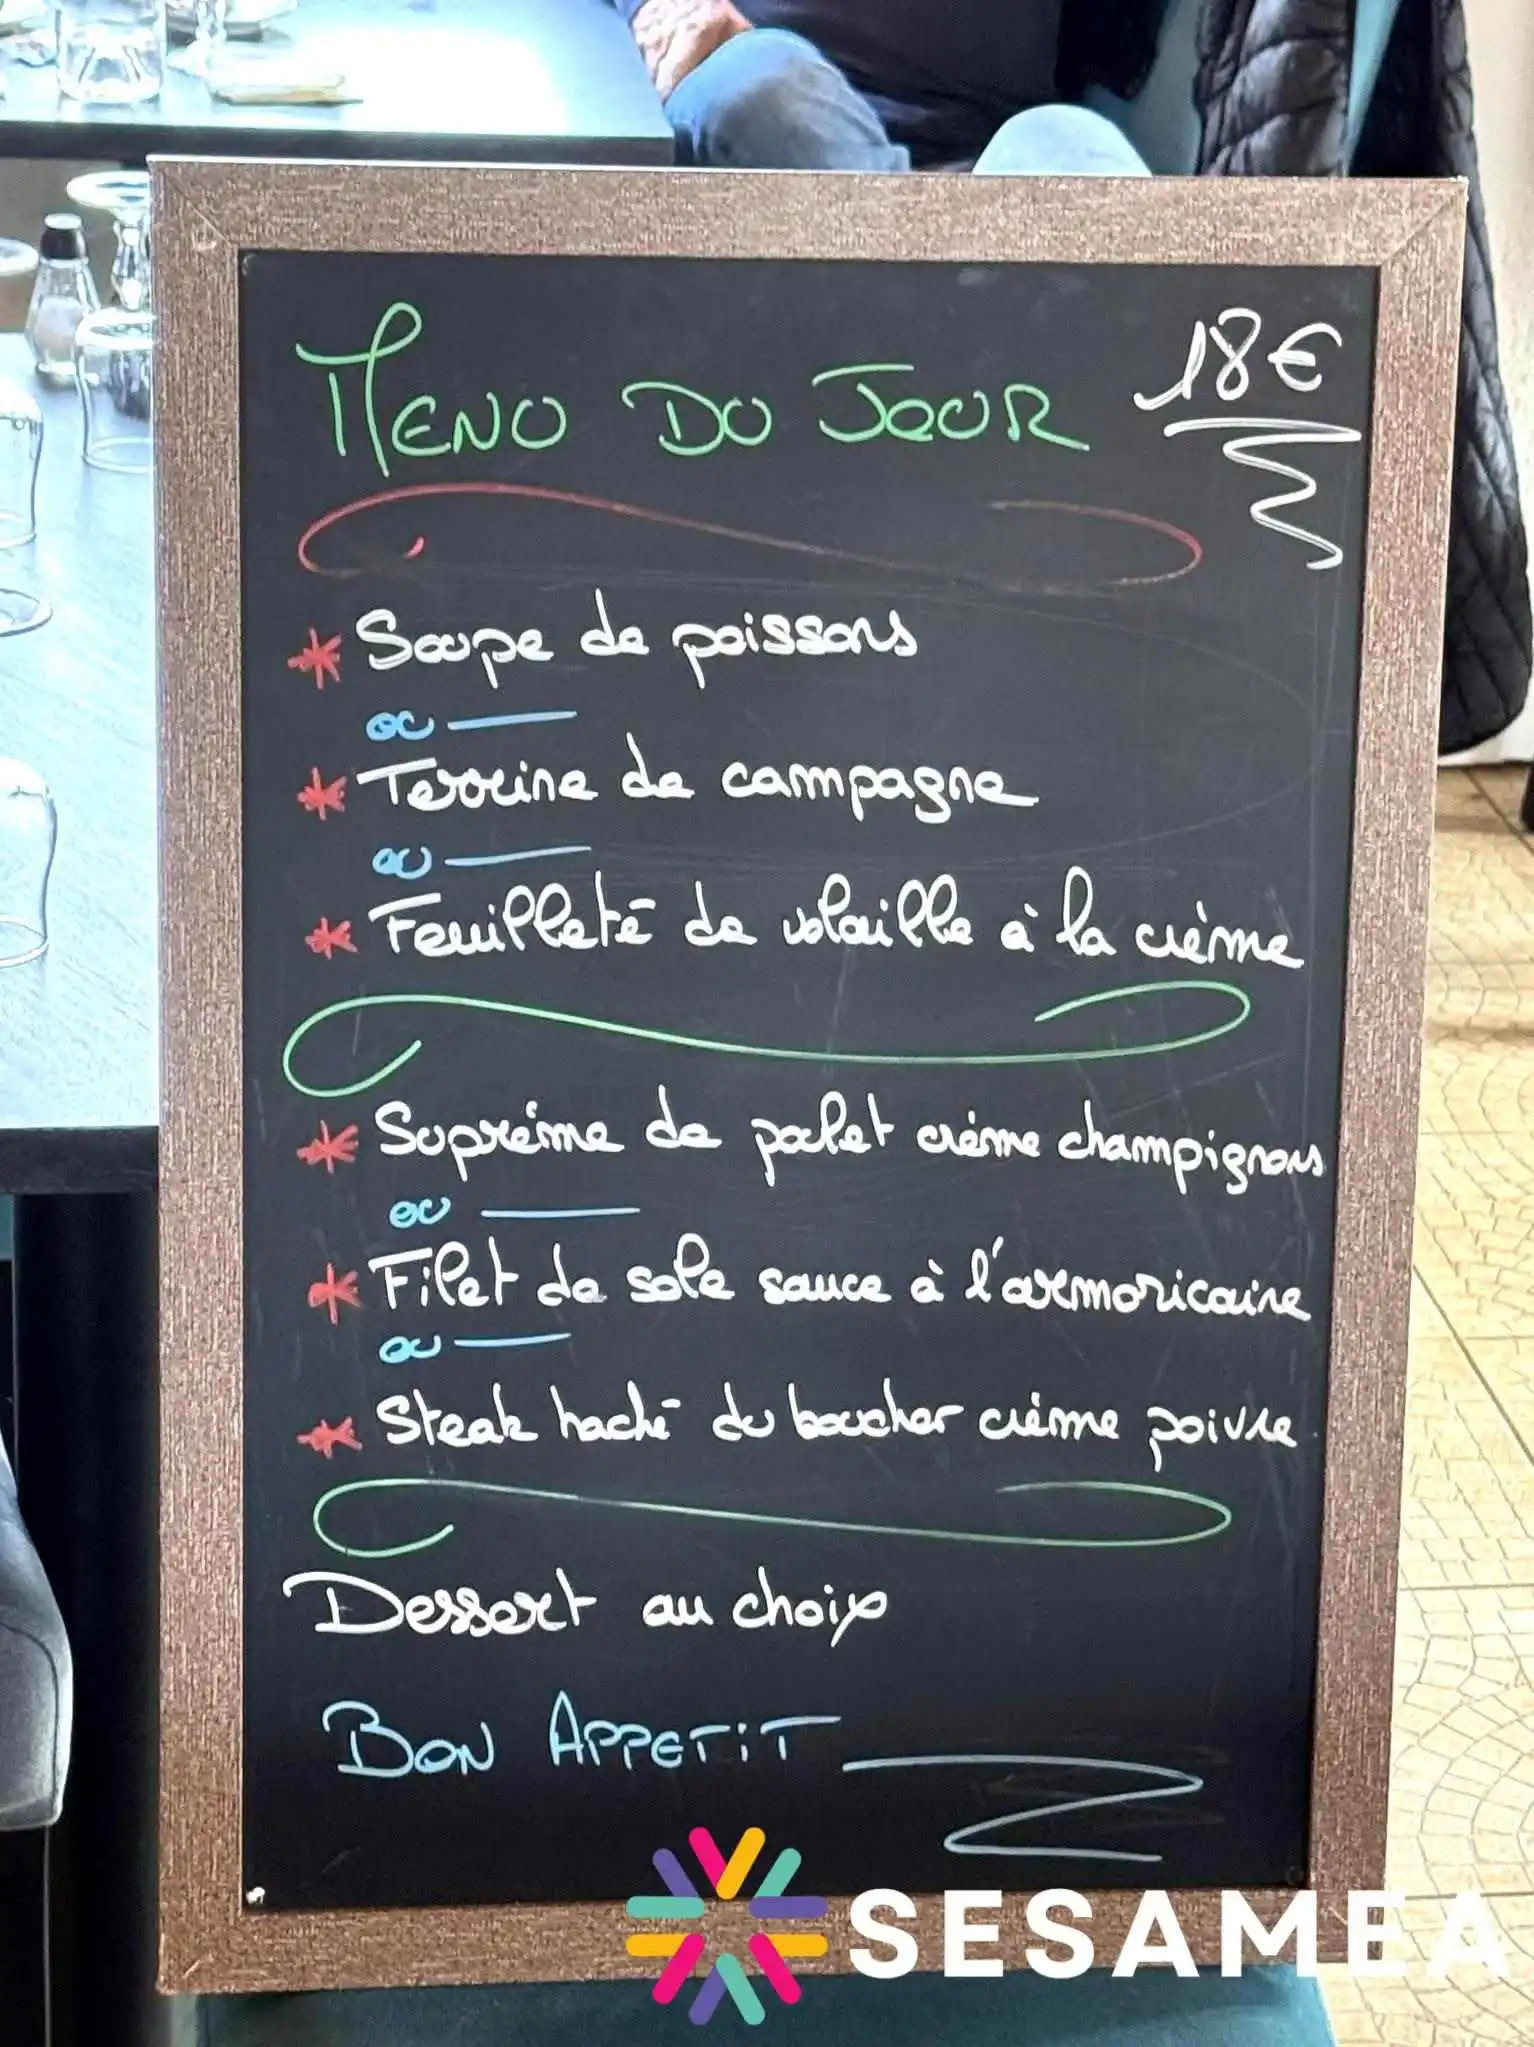 MENU DU JOUR 18€
* Soupe de poissons
ou
* Terrine de campagne
ou
* Feuilleté de volaille à la crème
* Suprême de poulet crème champignons
ou
* Filet de sole sauce à l'armoricaine
ou
* Steak haché du boucher crème poivre
Dessert au choix
BON APPETIT
SESAMEA